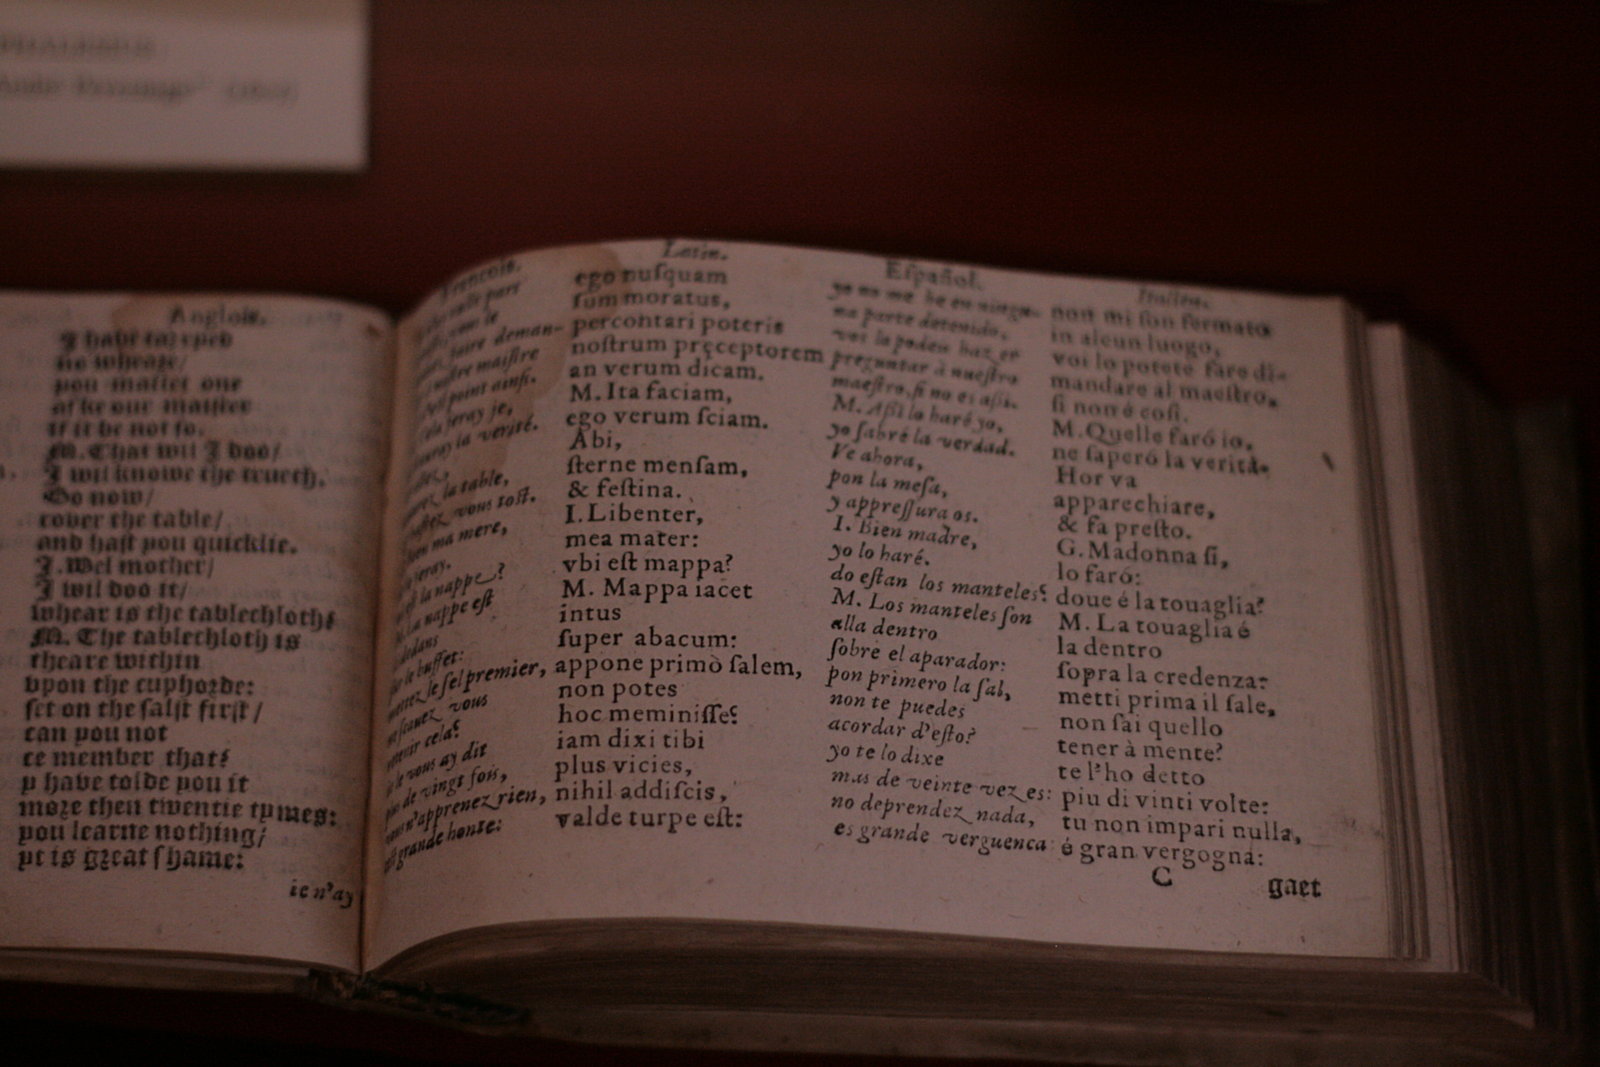 Anglois.
I have taryed
no wheare/
you maister one
aske our maister
if it be not so.
M. That wil I doo/
I wil knowe the trueth.
Go now/
cover the table/
and hast you quicklie.
I. Wel mother/
I wil doo it/
whear is the tablechloth?
M. The tablechloth is
theare within
vpon the cuphorde:
set on the salst first /
can you not
re member that?
y have tolde you it
more then twentie tymes:
you learne nothing/
yt is great shame:
ie n'ay
François.
nulle part
vous le
faire deman-
nostre maistre
point ainsi.
feray je,
la verité.
la table,
vous tost.
ma mere,
feray.
la nappe?
La nappe est
dedans
le buffet:
mettez le sel premier,
sçauez vous
retenir cela?
ie vous ay dit
plus de vingt fois,
vous n'apprenez rien,
grande honte:
Latin.
ego nusquam
sum moratus,
percontari poteris
nostrum pręceptorem
an verum dicam.
M. Ita faciam,
ego verum sciam.
Abi,
sterne mensam,
& festina.
I. Libenter,
mea mater:
vbi est mappa?
M. Mappa iacet
intus
super abacum:
appone primò salem,
non potes
hoc meminisse?
iam dixi tibi
plus vicies,
nihil addiscis,
valde turpe est:
Español.
yo no me he en ningu-
na parte detenido.
vos lo podeis haz er
preguntar à nuestro
maestro, si no es asi.
M. Assi lo haré yo,
yo sabré la verdad.
Ve ahora,
pon la mesa,
y appressura os.
I. Bien madre,
yo lo haré.
do estan los manteles?
M. Los manteles son
alla dentro
sobre el aparador:
pon primero la sal,
non te puedes
acordar d'esto?
yo te lo dixe
mas de veinte vez es:
no deprendez nada,
es grande verguenca:
Italien.
non mi son fermato
in alcun luogo,
voi lo potete fare di-
mandare al maestro,
si non é cosi.
M. Quello faró io,
ne saperó la verità.
Hor va
apparechiare,
& fa presto.
G. Madonna si,
lo faró:
doue é la touaglia?
M. La touaglia é
la dentro
sopra la credenza:
metti prima il sale,
non sai quello
tener à mente?
te l'ho detto
piu di vinti volte:
tu non impari nulla,
é gran vergogna:
C gaet